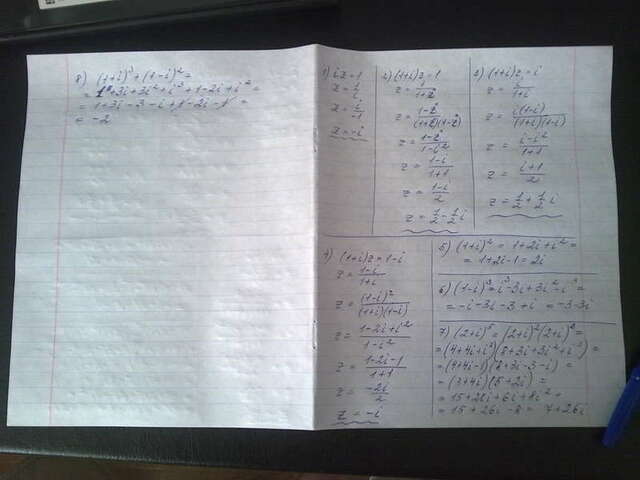 8) (1+i)³+(1-i)²=
= 1³+3i+3i²+i³+1-2i+i²=
= 1+3i-3-i+1-2i-1=
= -2
1) iz=1
z=1/i
z=i/-1
z=-i
2) (1+i)z=1
z=1/1+i
z=1-i/(1+i)(1-i)
z=1-i/1-i²
z=1-i/1+1
z=1-i/2
z=1/2-1/2i
3) (1+i)z=i
z=i/1+i
z=i(1-i)/(1+i)(1-i)
z=i-i²/1+1
z=i+1/2
z=1/2+1/2i
4) (1+i)z=1-i
z=1-i/1+i
z=(1-i)²/(1+i)(1-i)
z=1-2i+i²/1-i²
z=1-2i-1/1+1
z=-2i/2
z=-i
5) (1+i)²=1+2i+i²=
=1+2i-1=2i
6) (1-i)³=i³-3i+3i²-i³=
=-i-3i-3+i=-3-3i
=(4+4i+i²)(8+3i+3i²+i³)=
=(4+4i-1)(8+3i-3-i)=
=(3+4i)(5+2i)=
=15+26i-8=7+26i